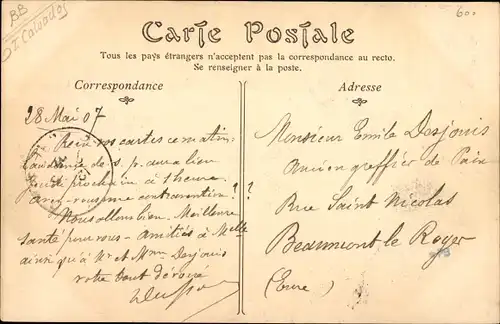 BB
DZ Calvados
600
Carte Postale
Tous les pays étrangers n'acceptent pas la correspondance au recto.
Se renseigner à la poste.
Correspondance
28 Mai 07
Reçu vos cartes ce matin.
L'audience de s. p. aura lieu
Jeudi prochain à 1 heure.
avez-vous une contravention ?
Nous allons bien. Meilleure
santé pour vous - amitiés à Melle
ainsi qu'à Mr et Mme Desjouis
votre tout dévoué
Adresse
Monsieur Emile Desjouis
Ancien greffier de Paix
Rue Saint Nicolas
Beaumont le Roger
(Eure)